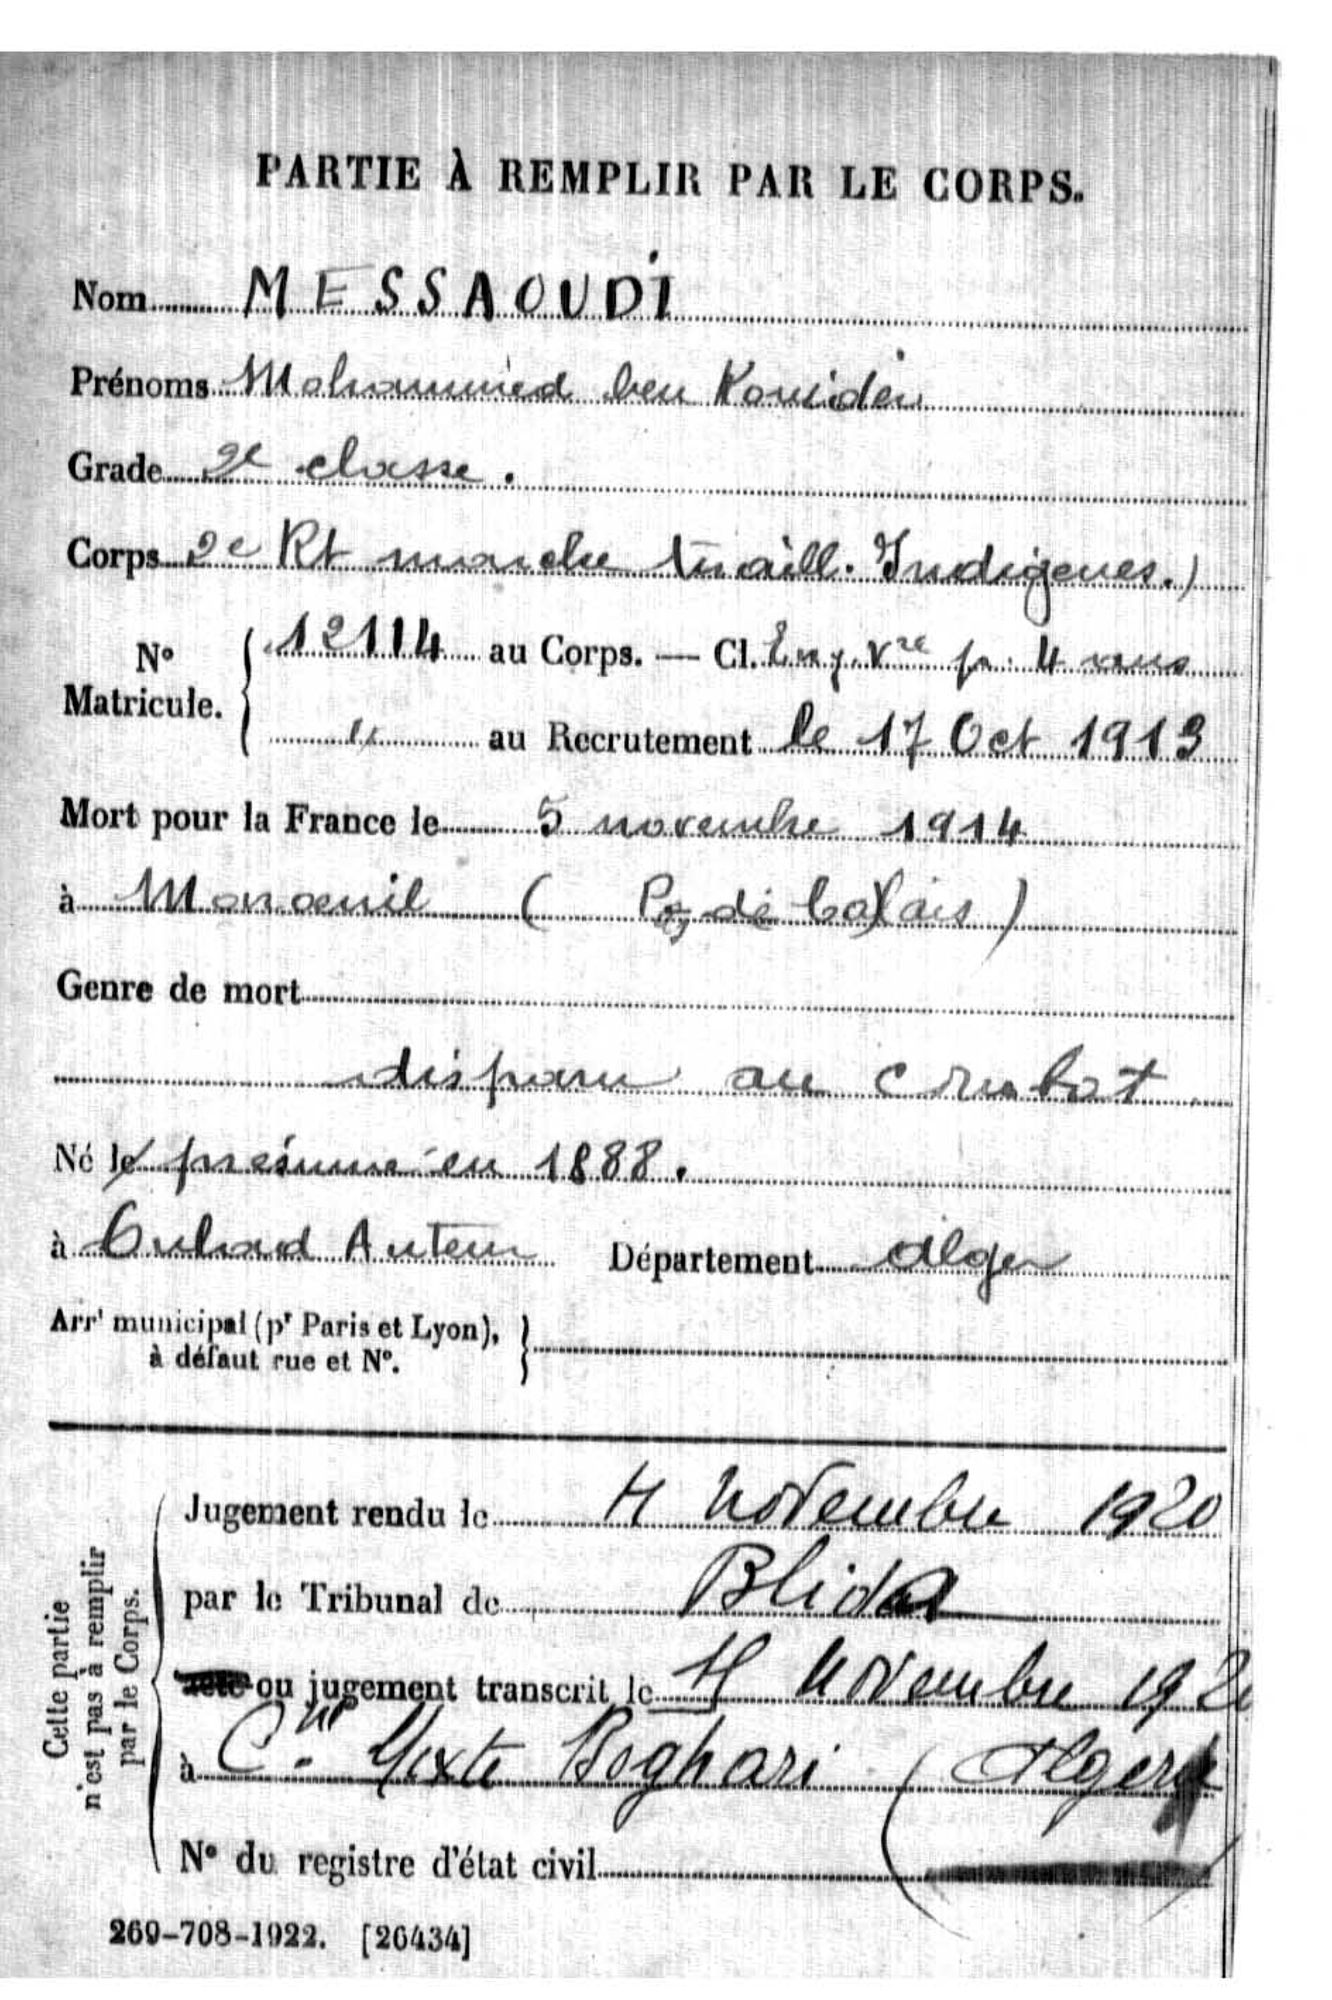 PARTIE À REMPLIR PAR LE CORPS.
Nom MESSAOUDI
Prénoms Mohammed ben Kouider
Grade 2e classe.
Corps 2e Rt marche tiraill. Indigènes.)
N° Matricule. 12114 au Corps. — Cl. Eng. Vre pr. 4 ans
au Recrutement le 17 Oct 1913
Mort pour la France le 5 novembre 1914
à Maroeuil (Pas de Calais)
Genre de mort
disparu au combat
Né le présumé en 1888.
à Oulad Anteur Département Alger
Arrt municipal (pr Paris et Lyon),
à défaut rue et N°.
Cette partie
n'est pas à remplir
par le Corps.
Jugement rendu le 4 Novembre 1920
par le Tribunal de Blida
acte ou jugement transcrit le 4 Novembre 1920
à Cne Mixte Boghari (Alger)
N° du registre d'état civil
269-708-1922. [26434]